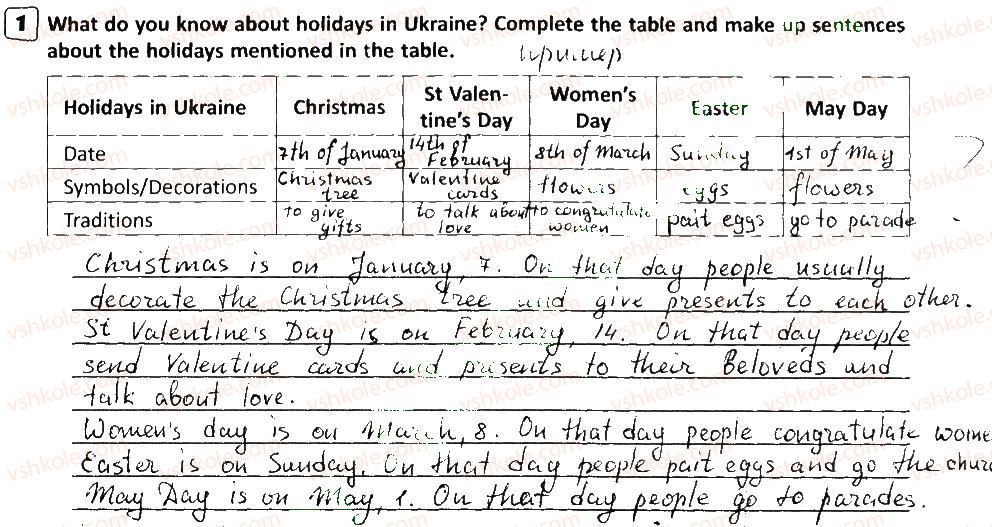 1 What do you know about holidays in Ukraine? Complete the table and make up sentences
about the holidays mentioned in the table.
Holidays in Ukraine Christmas St Valen-tine's Day Women's Day Easter May Day
Date 7th of January 14th of February 8th of March Sunday 1st of May
Symbols/Decorations Christmas tree Valentine cards flowers eggs flowers
Traditions to give gifts to talk about love to congratulate women pait eggs go to parade
Christmas is on January, 7. On that day people usually
decorate the Christmas tree and give presents to each other.
St Valentine's Day is on February, 14. On that day people
send Valentine cards and presents to their Beloveds and
talk about love.
Women's day is on March, 8. On that day people congratulate wome
Easter is on Sunday. On that day people pait eggs and go the churc
May Day is on May, 1. On that day people go to parades.